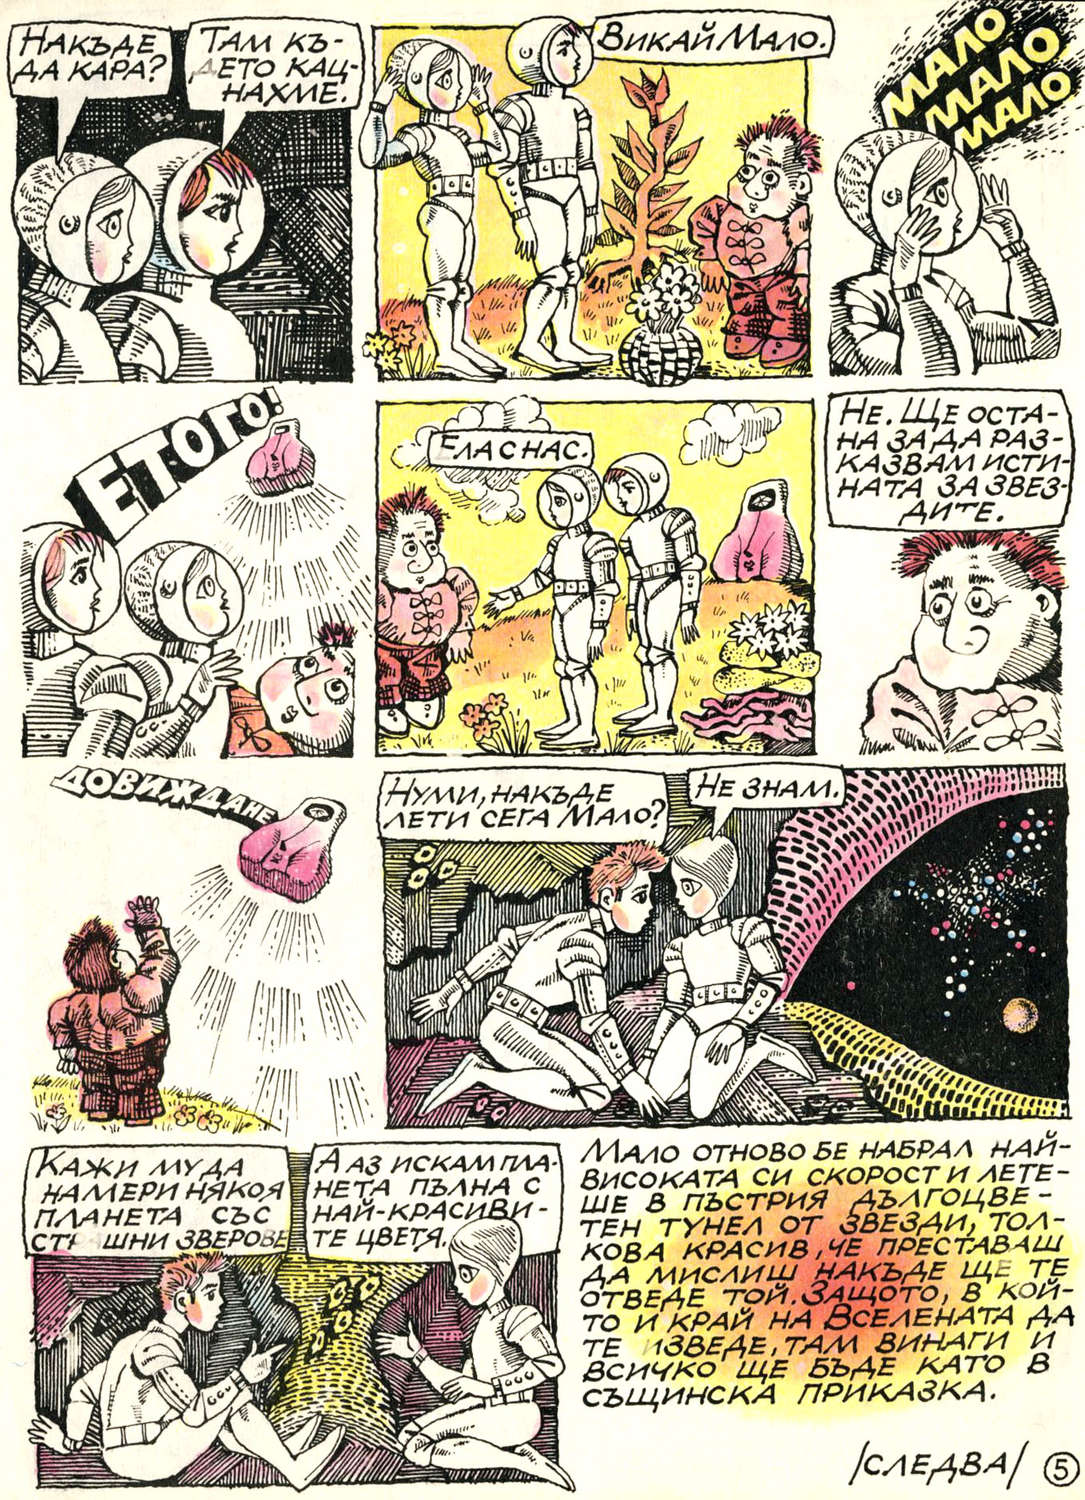 НАКЪДЕ
ДА КАРА?
ТАМ КЪ-
ДЕТО КАЦ-
НАХМЕ.
ВИКАЙ МАЛО.
МАЛО
МАЛО
МАЛО
ЕТО ГО!
ЕЛА С НАС.
НЕ. ЩЕ ОСТА-
НА ЗА ДА РАЗ-
КАЗВАМ ИСТИ-
НАТА ЗА ЗВЕЗ-
ДИТЕ.
ДОВИЖДАНЕ
НУМИ, НАКЪДЕ
ЛЕТИ СЕГА МАЛО?
НЕ ЗНАМ.
КАЖИ МУ ДА
НАМЕРИ НЯКОЯ
ПЛАНЕТА СЪС
СТРАШНИ ЗВЕРОВЕ
А АЗ ИСКАМ ПЛА-
НЕТА ПЪЛНА С
НАЙ-КРАСИВИ-
ТЕ ЦВЕТЯ.
МАЛО ОТНОВО БЕ НАБРАЛ НАЙ-
ВИСОКАТА СИ СКОРОСТ И ЛЕТЕ-
ШЕ В ПЪСТРИЯ ДЪЛГОЦВЕ-
ТЕН ТУНЕЛ ОТ ЗВЕЗДИ, ТОЛ-
КОВА КРАСИВ, ЧЕ ПРЕСТАВАШ
ДА МИСЛИШ НАКЪДЕ ЩЕ ТЕ
ОТВЕДЕ ТОЙ. ЗАЩОТО, В КОЙ-
ТО И КРАЙ НА ВСЕЛЕНАТА ДА
ТЕ ИЗВЕДЕ, ТАМ ВИНАГИ И
ВСИЧКО ЩЕ БЪДЕ КАТО В
СЪЩИНСКА ПРИКАЗКА.
/СЛЕДВА/
5